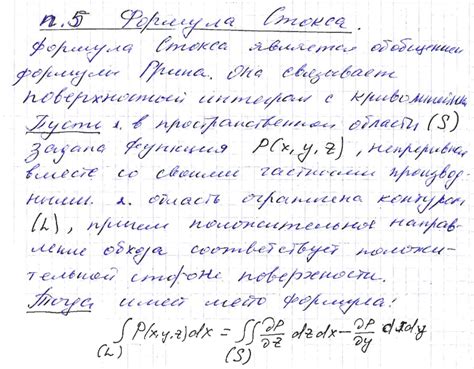 п.5 Формула Стокса.
Формула Стокса является обобщением
формулы Грина. Она связывает
поверхностный интеграл с криволинейным
Пусть 1. в пространственной области (S)
задана функция P(x,y,z), непрерывная
вместе со своими частными производ-
ными. 2. область ограничена контуром
(L), причем положительное направ-
ление обхода соответствует положи-
тельной стороне поверхности.
Тогда имеет место формула:
∫(L) P(x,y,z)dx = ∬(S) ∂P/∂z dzdx − ∂P/∂y dxdy